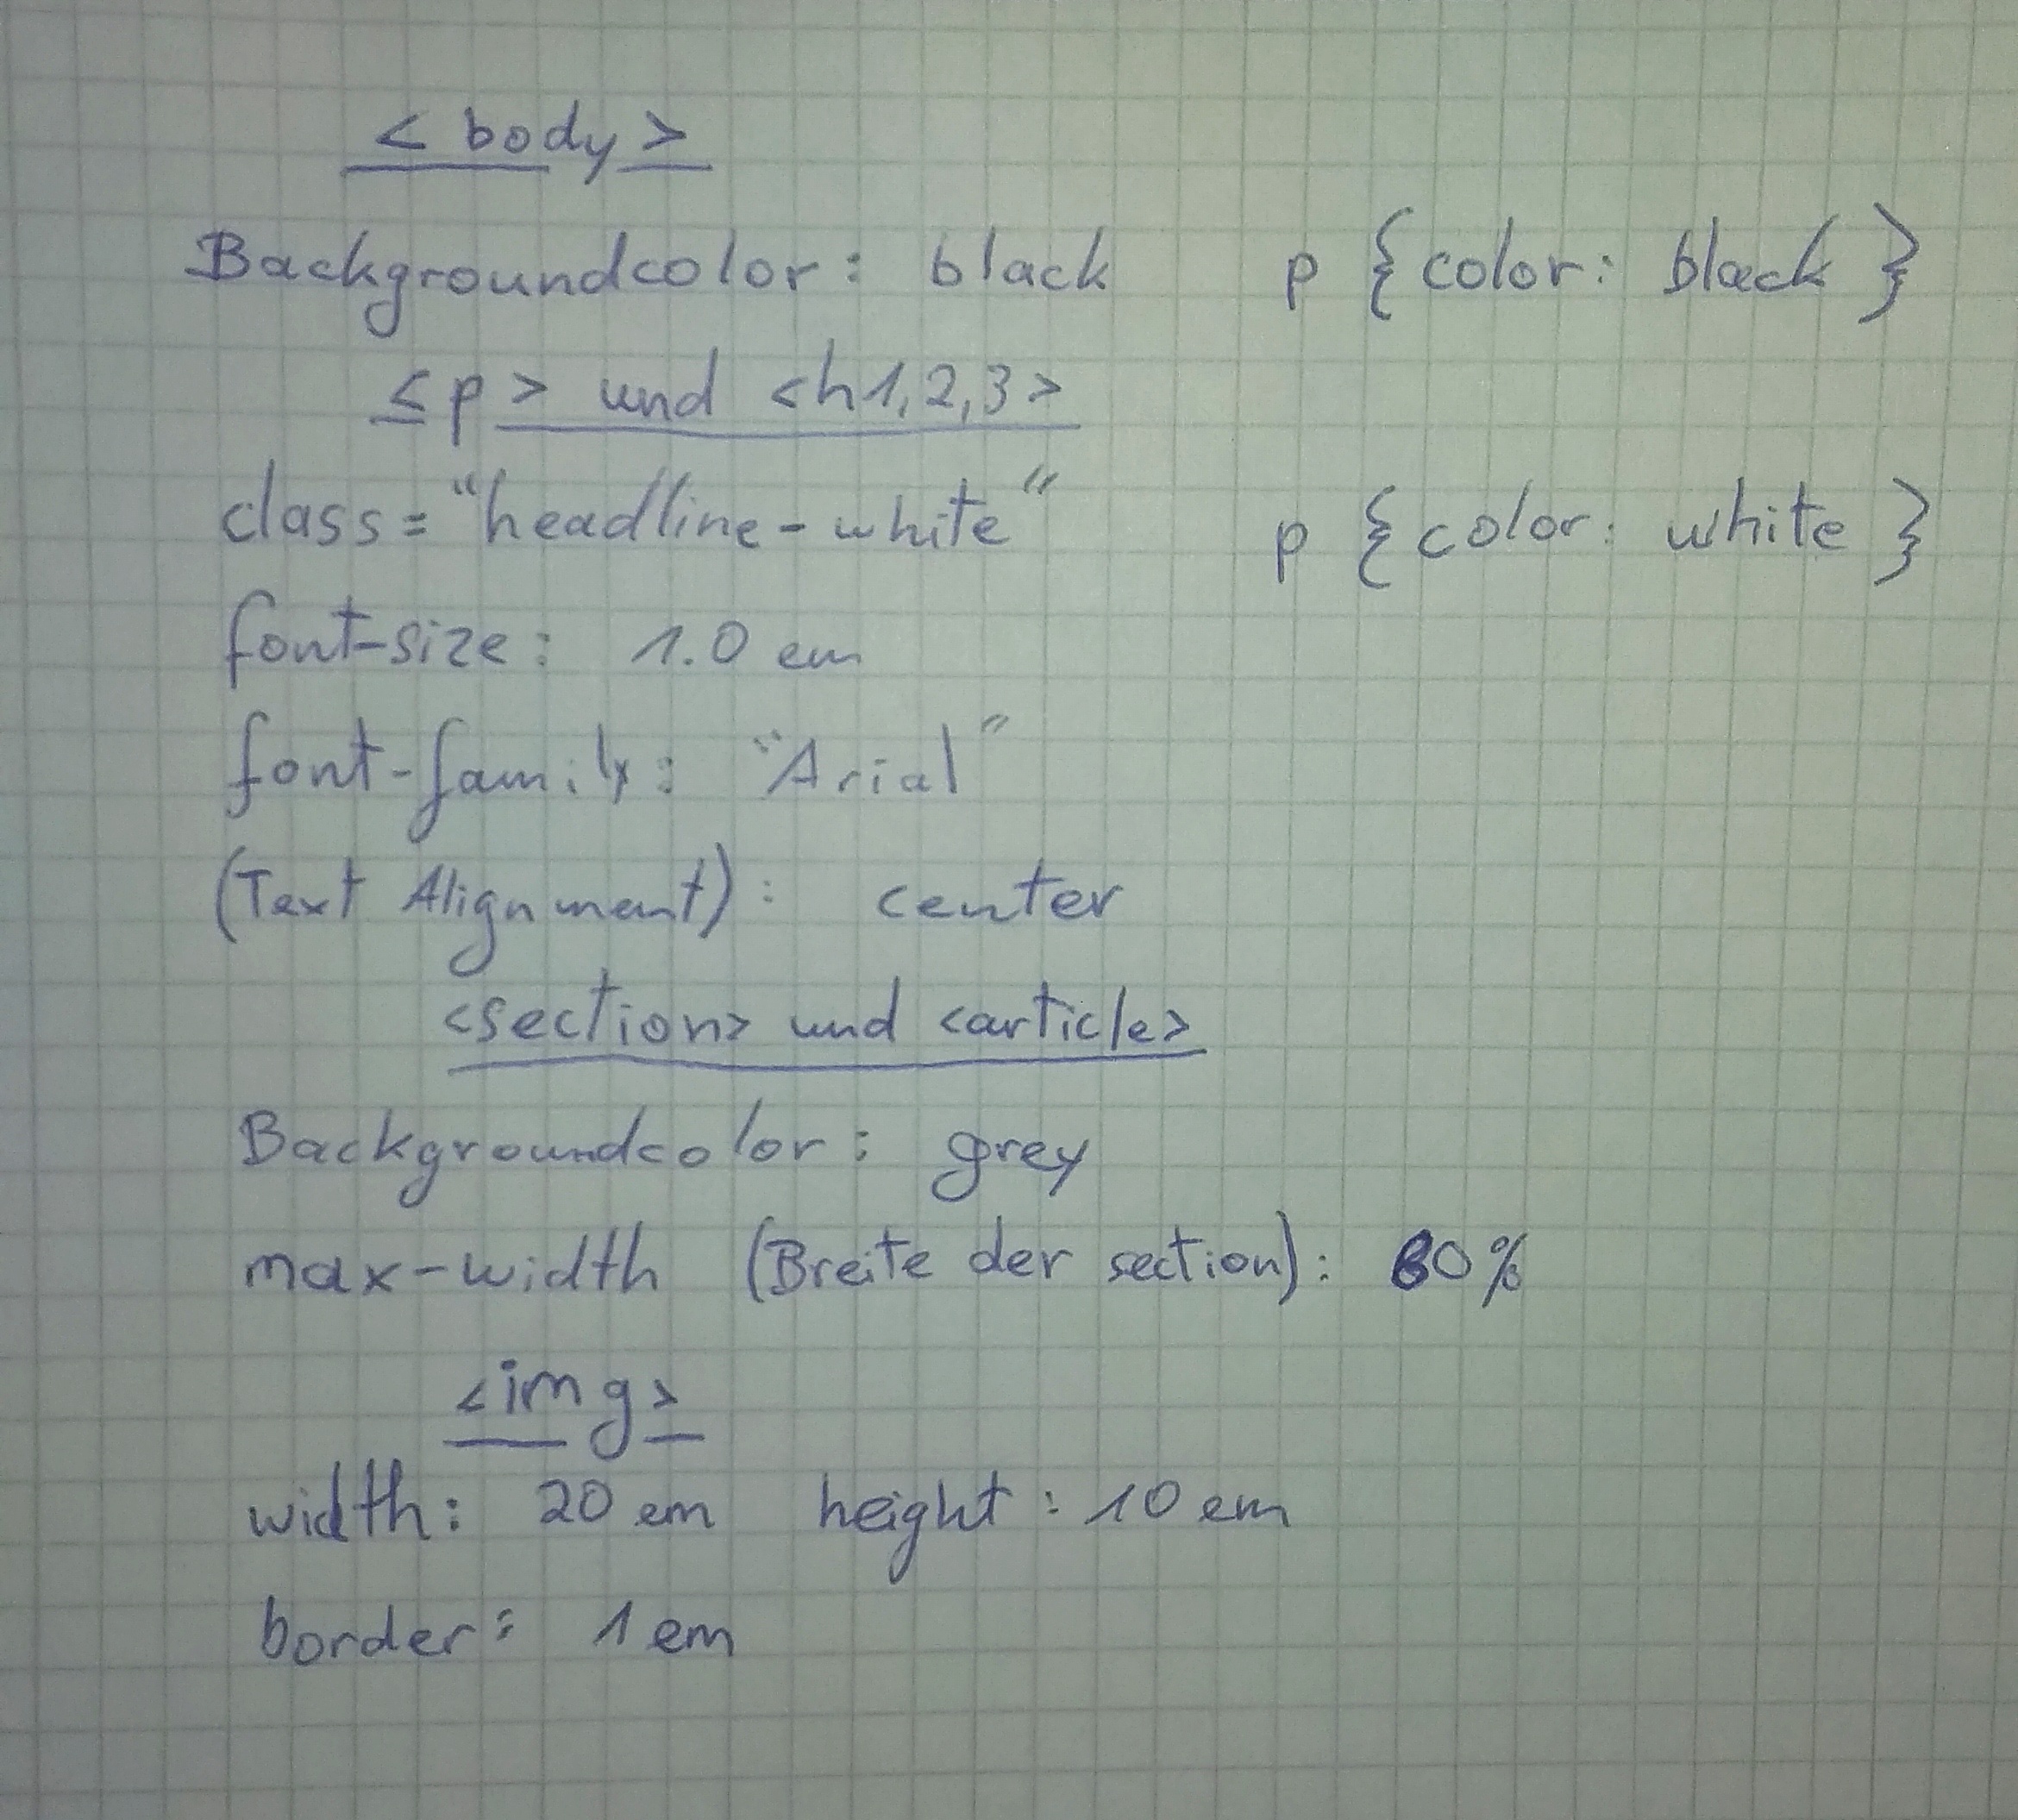 < body >
Backgroundcolor: black p {color: black}
<p> und <h1,2,3>
class="headline-white" p {color: white}
font-size: 1.0 em
font-family: "Arial"
(Text Alignment): center
<section> und <article>
Backgroundcolor: grey
max-width (Breite der section):
<img>
width: 20 em height: 10 em
border: 1 em